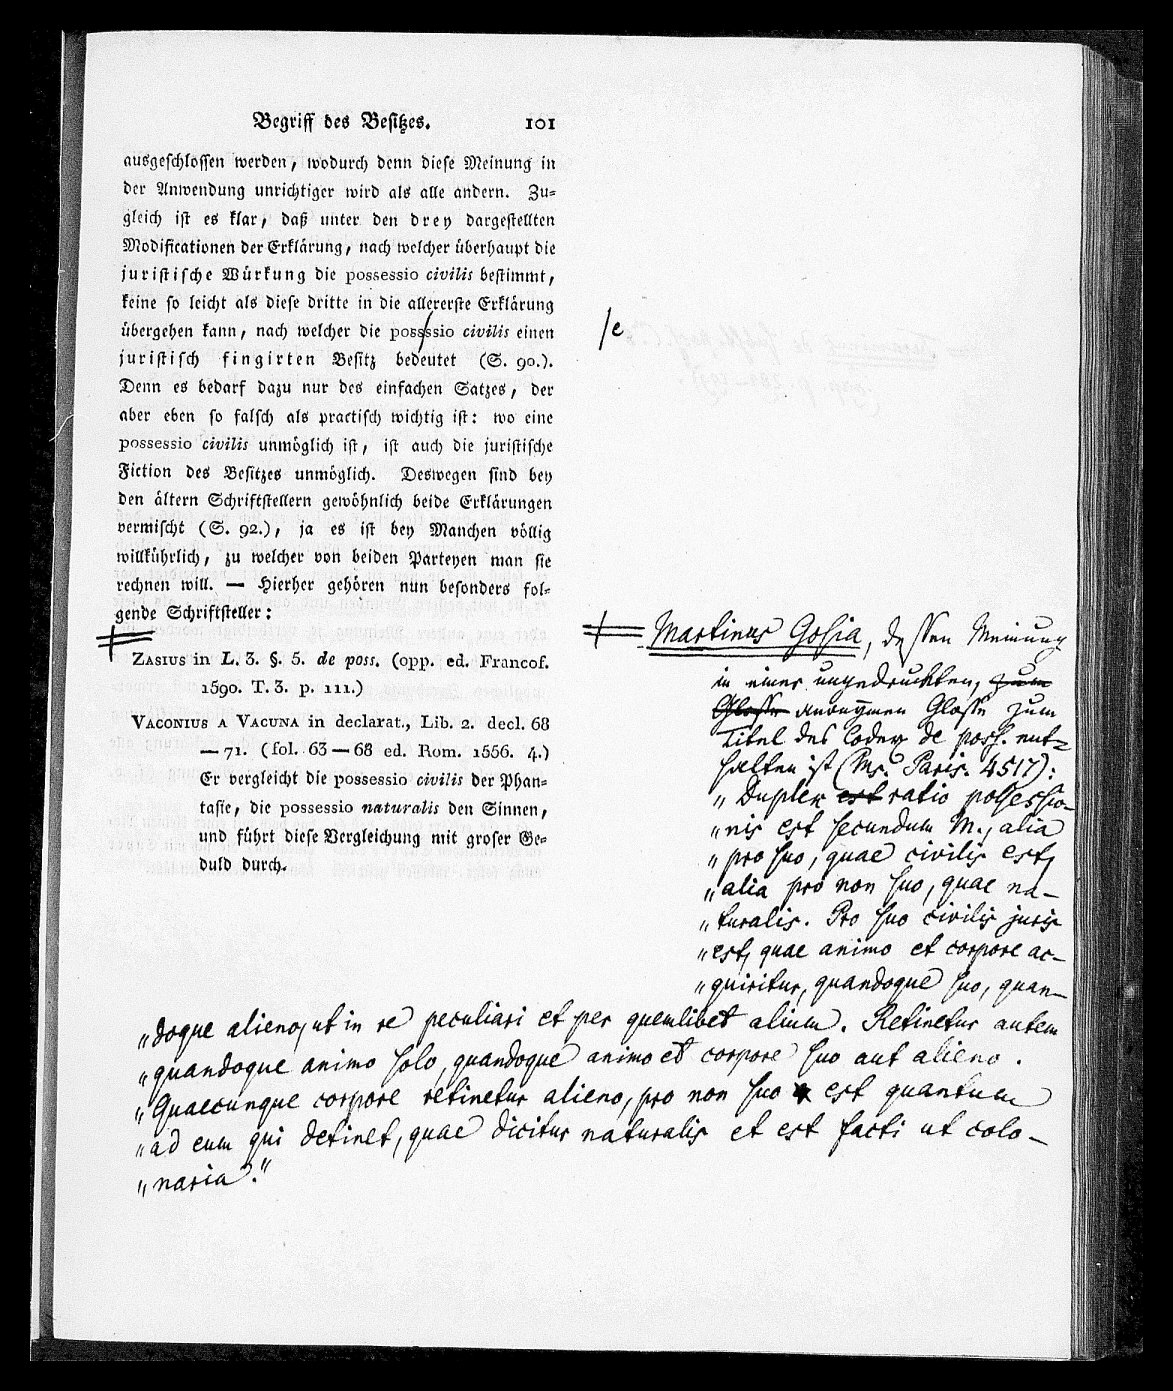 Begriff des Besitzes. 101
ausgeschlossen werden, wodurch denn diese Meinung in
der Anwendung unrichtiger wird als alle andern. Zu-
gleich ist es klar, daß unter den drey dargestellten
Modificationen der Erklärung, nach welcher überhaupt die
juristische Würkung die possessio civilis bestimmt,
keine so leicht als diese dritte in die allererste Erklärung
übergehen kann, nach welcher die posssssio civilis einen
/e
juristisch fingirten Besitz bedeutet (S. 90.).
Denn es bedarf dazu nur des einfachen Satzes, der
aber eben so falsch als practisch wichtig ist: wo eine
possessio civilis unmöglich ist, ist auch die juristische
Fiction des Besitzes unmöglich. Deswegen sind bey
den ältern Schriftstellern gewöhnlich beide Erklärungen
vermischt (S. 92.), ja es ist bey Manchen völlig
willkührlich, zu welcher von beiden Parteyen man sie
rechnen will. — Hierher gehören nun besonders fol-
gende Schriftsteller:
ZASIUS in L. 3. §. 5. de poss. (opp. ed. Francof.
1590. T. 3. p. 111.)
VACONIUS A VACUNA in declarat., Lib. 2. decl. 68
—71. (fol. 63—68 ed. Rom. 1556. 4.)
Er vergleicht die possessio civilis der Phan-
tasie, die possessio naturalis den Sinnen,
und führt diese Vergleichung mit groser Ge-
duld durch.
Martinus Gosia, dessen Meinung
in einer ungedruckten, zum
Glosse anonymen Glosse zum
Titel des Codex de poss. ent-
halten ist (Ms. Paris. 4517):
„Duplex est ratio possessio-
„nis est secundum M., alia
„pro suo, quae civilis est,
„alia pro non suo, quae na-
„turalis. Pro suo civilis juris
„est, quae animo et corpore ac-
„quiritur, quandoque suo, quan-
„doque alieno, ut in re peculiari et per quemlibet alium. Retinetur autem
„quandoque animo solo, quandoque animo et corpore suo aut alieno.
„Quaecunque corpore retinetur alieno, pro non suo est quantum
„ad eum qui detinet, quae dicitur naturalis et est facti ut colo-
„naria."